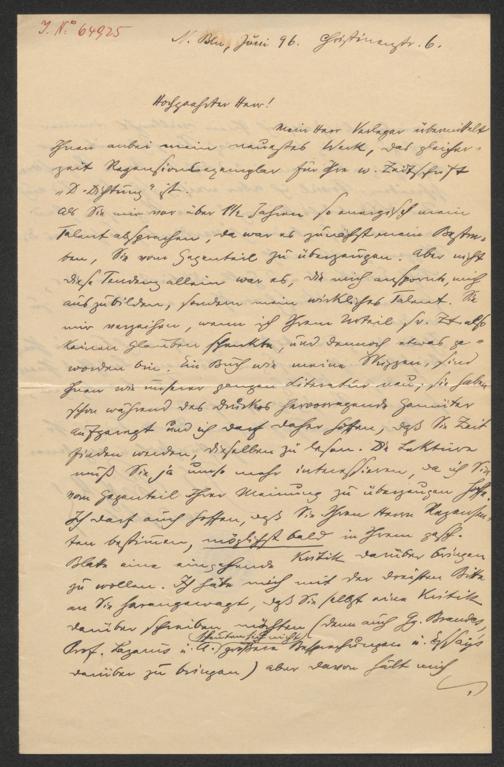 J. N° 64925
N. Bln, Juni 96. Christinenstr. 6.
Hochgeehrter Herr!
Mein Herr Verleger übermittelt
Ihnen anbei mein neuestes Werk, das gleicher-
zeit Rezensionsexemplar für Ihre w. Zeitschrift
"D. Dichtung" ist.
Als Sie mir vor über 1½ Jahren so energisch mein
Talent absprachen, da war es zunächst mein Bestre-
ben, Sie vom Gegenteil zu überzeugen. Aber nicht
diese Tendenz allein war es, die mich anspornte, mich
auszubilden, sondern mein wirkliches Talent. Sie
mir verzeihen, wenn ich Ihrem Urteil sr. Zt. also
keinen Glauben schenkte, und dennoch etwas ge-
worden bin. Ein Buch wie meine Skizzen, sind
Ihnen wie unserer ganzen Literatur neu, sie haben
schon während des Druckes hervorragende Gemüter
aufgeregt und ich darf daher hoffen, daß Sie Zeit
finden werden, dieselben zu lesen. Die Lektüre
muß Sie ja umso mehr interessieren, da ich Sie
vom Gegenteil Ihrer Meinung zu überzeugen hoffe.
Ich darf auch hoffen, daß Sie Ihren Herrn Rezensen-
ten bestimmen, möglichst bald in Ihrem gesch.
Blatt eine eingehende Kritik darüber bringen
zu wollen. Ich hätte mich mit der dreisten Bitte
an Sie herangewagt, daß Sie selbst eine Kritik
darüber schreiben möchten (denn auch Gg. Brandes,
scheuten sich nicht
Prof. Lazarus u. A. größere Besprechungen u. Essays
darüber zu bringen) aber davon hält mich